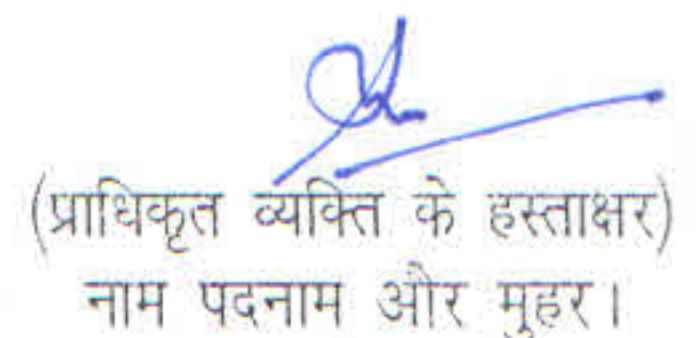 (प्राधिकृत व्यक्ति के हस्ताक्षर)
नाम पदनाम और मुहर।